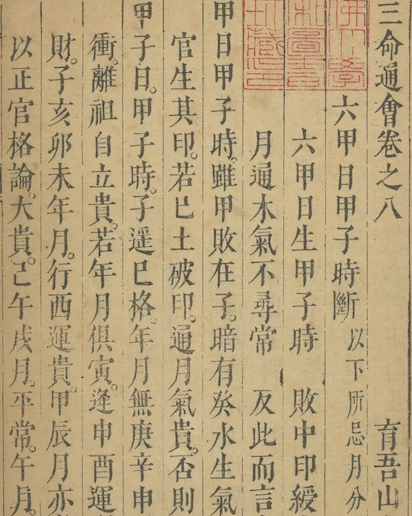 三命通會卷之八 育吾山
六甲日甲子時斷 以下所忌月分
六甲日生甲子時 敗中印綬
月通水氣不尋常 反此而言
甲日甲子時。雖甲敗在子。暗有癸水生氣
官生其印。若己土破印。通月氣貴。否則
甲子日。甲子時。子遥巳格。年月無庚辛申
衝。離祖自立貴。若年月俱寅。逢申酉運
財。子亥卯未年月。行西運貴。甲辰月亦
以正官格論。大貴。己午戌月。平常。午月。